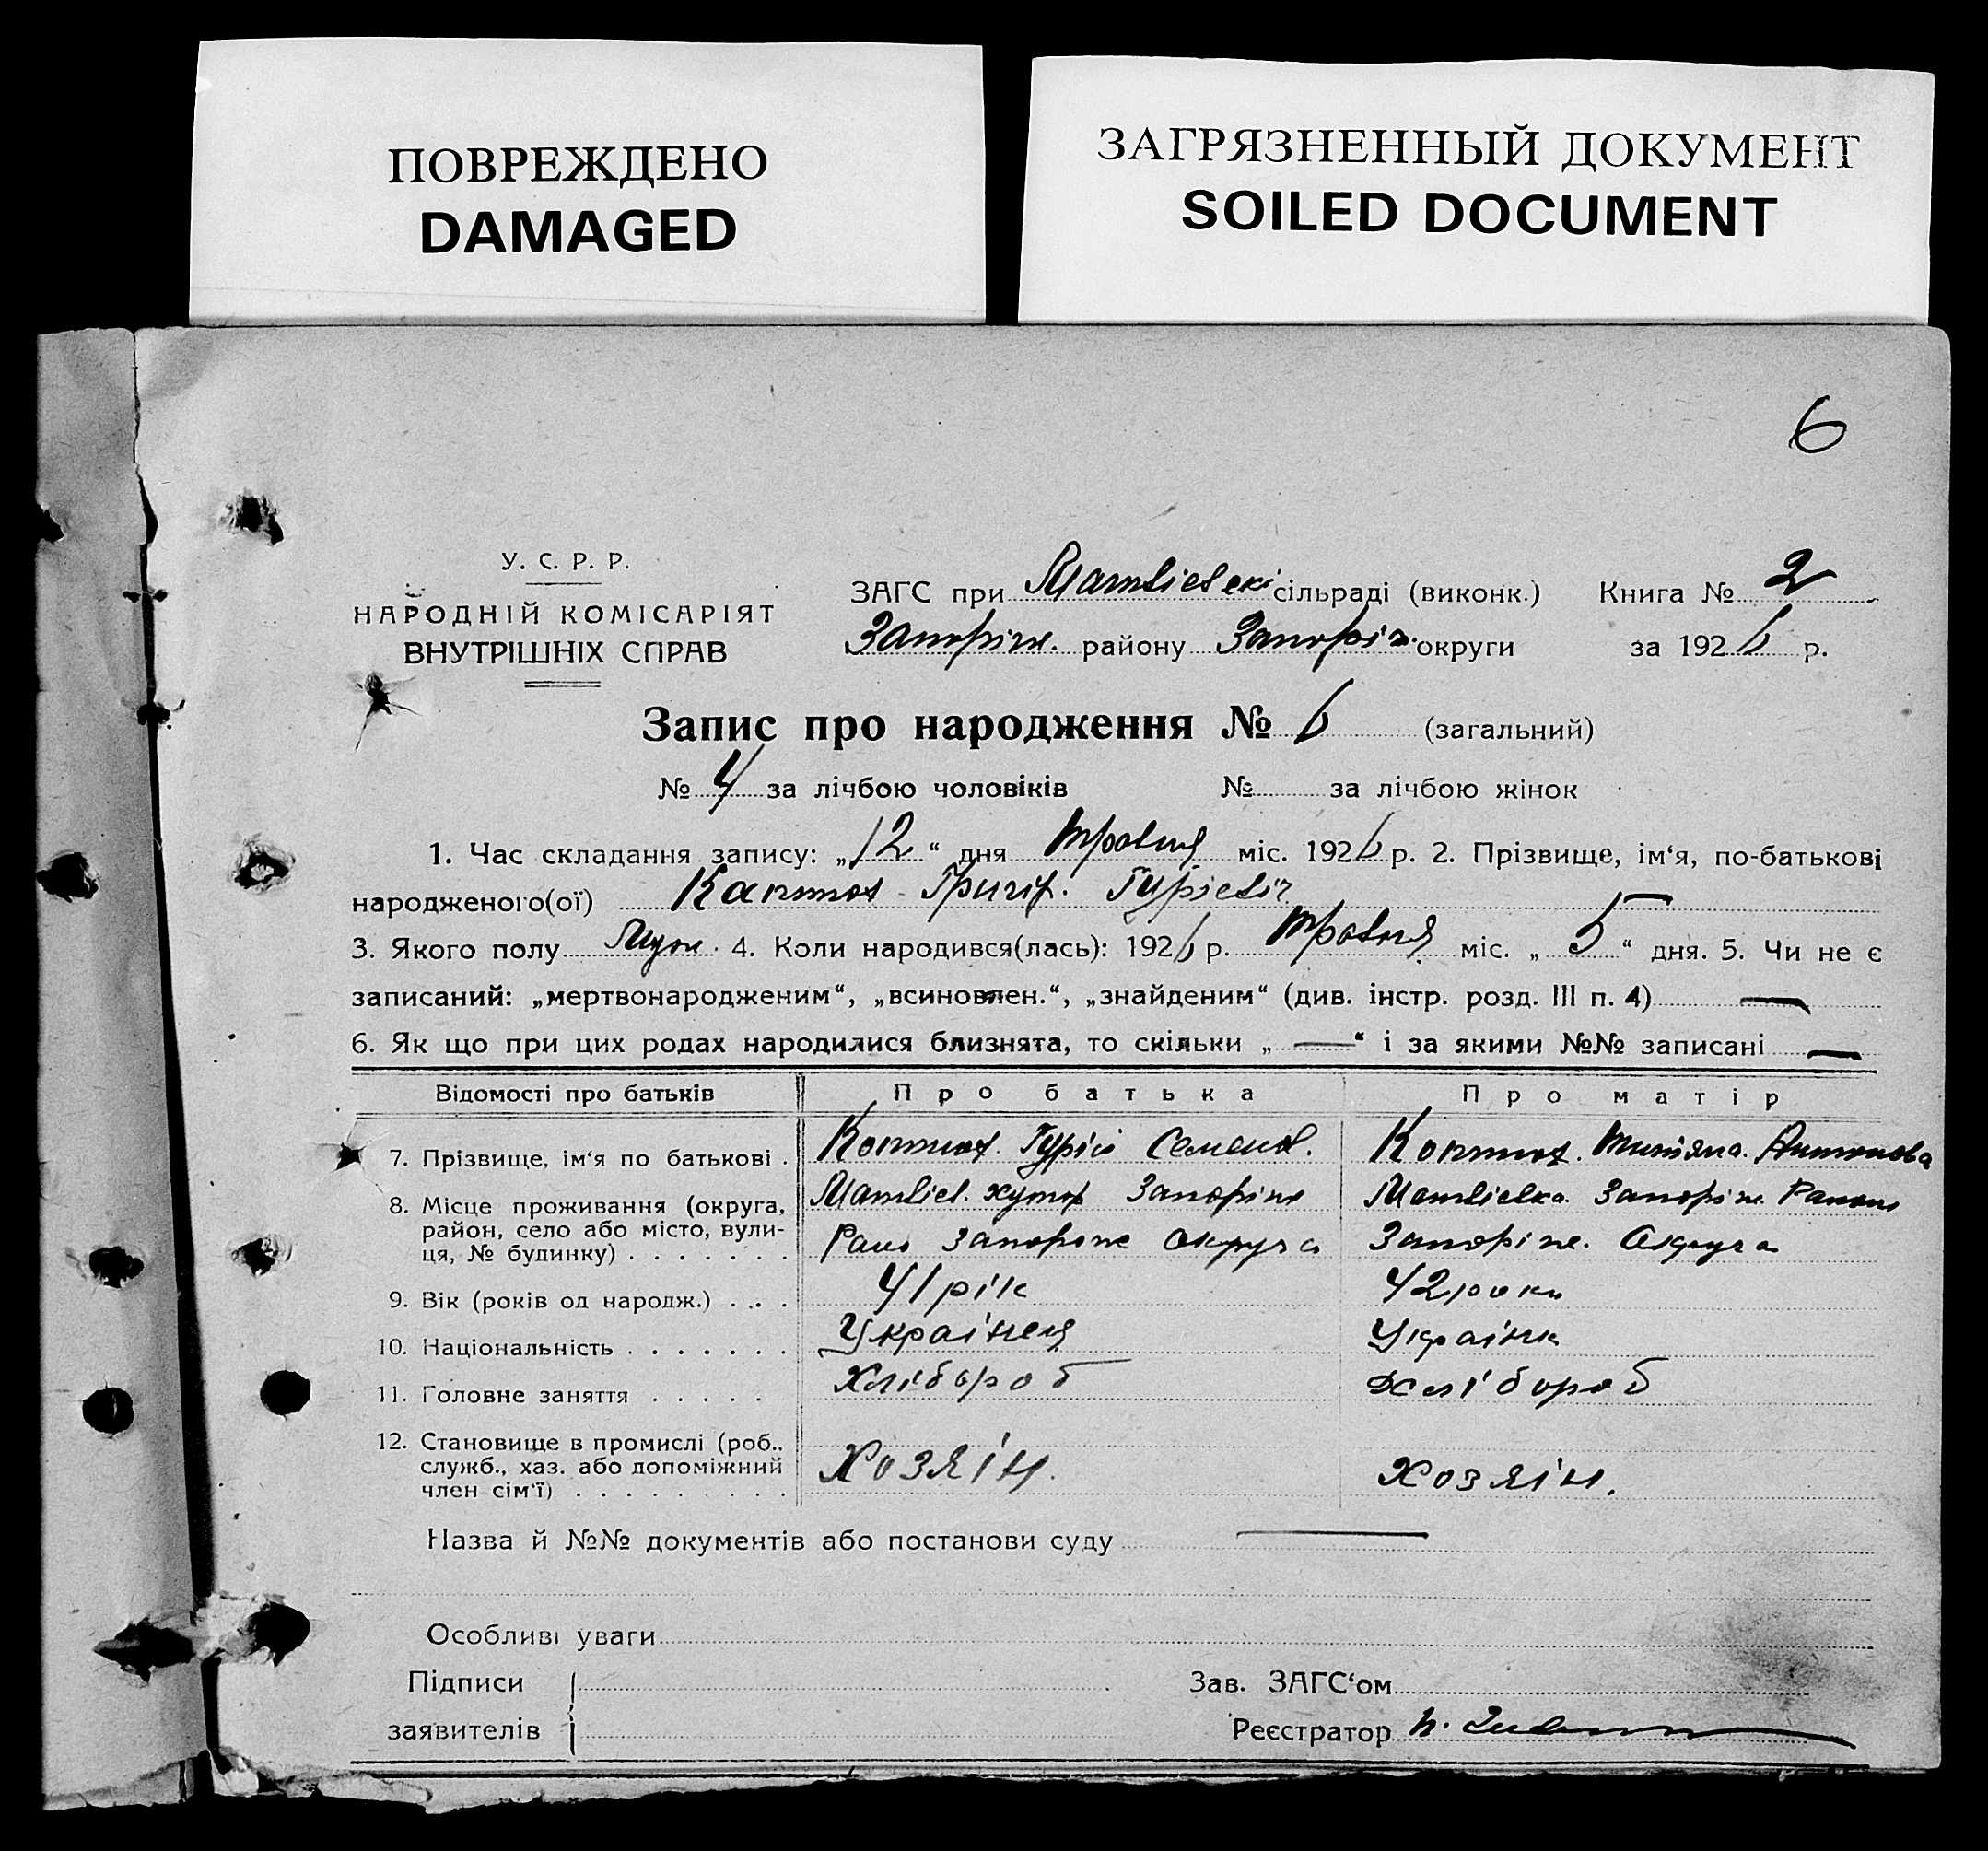 ПОВРЕЖДЕНО
DAMAGED
ЗАГРЯЗНЕННЫЙ ДОКУМЕНТ
SOILED DOCUMENT
6
У. С. Р. Р.
НАРОДНІЙ КОМІСАРІЯТ
ВНУТРІШНІХ СПРАВ
ЗАГС при Матвієвскі сільраді (виконк.) Книга № 2
Запоріж. району Запоріз. округи за 1926 р.
Запис про народження № 6 (загальний)
№ 4 за лічбою чоловіків № за лічбою жінок
1. Час складання запису: „12“ дня травня міс. 1926 р. 2. Прізвище, ім‘я, по-батькові
народженого(ої) Григ. Гурієвіч
3. Якого полу Муж. 4. Коли народився(лась): 1926 р. травня міс. „5“ дня. 5. Чи не є
записаний: „мертвонародженим“, „всиновлен.“, „знайденим“ (див. інстр. розд. III п. 4) —
6. Як що при цих родах народилися близнята, то скільки „—“ і за якими №№ записані —
Відомості про батьків Про батька Про матір
7. Прізвище, ім‘я по батькові . Гурій Семенов. Антонова
8. Місце проживання (округа, район, село або місто, вулиця, № будинку) . . . . . . .
Матвієв. хутор Запоріж
Округа
Матвієвка Запоріж. Района
Запоріж. Округа
9. Вік (років од народж.) . . . 41 рік 42 роки
10. Національність . . . . . . . Українец Українк
11. Головне заняття . . . . . Хлібороб Хлібороб
12. Становище в промислі (роб.. служб., хаз. або допоміжний член сім‘ї) . . . . . . . . . Хозяін. Хозяін.
Назва й №№ документів або постанови суду —
Особливі уваги
Підписи
заявителів
Зав. ЗАГС‘ом
Реєстратор